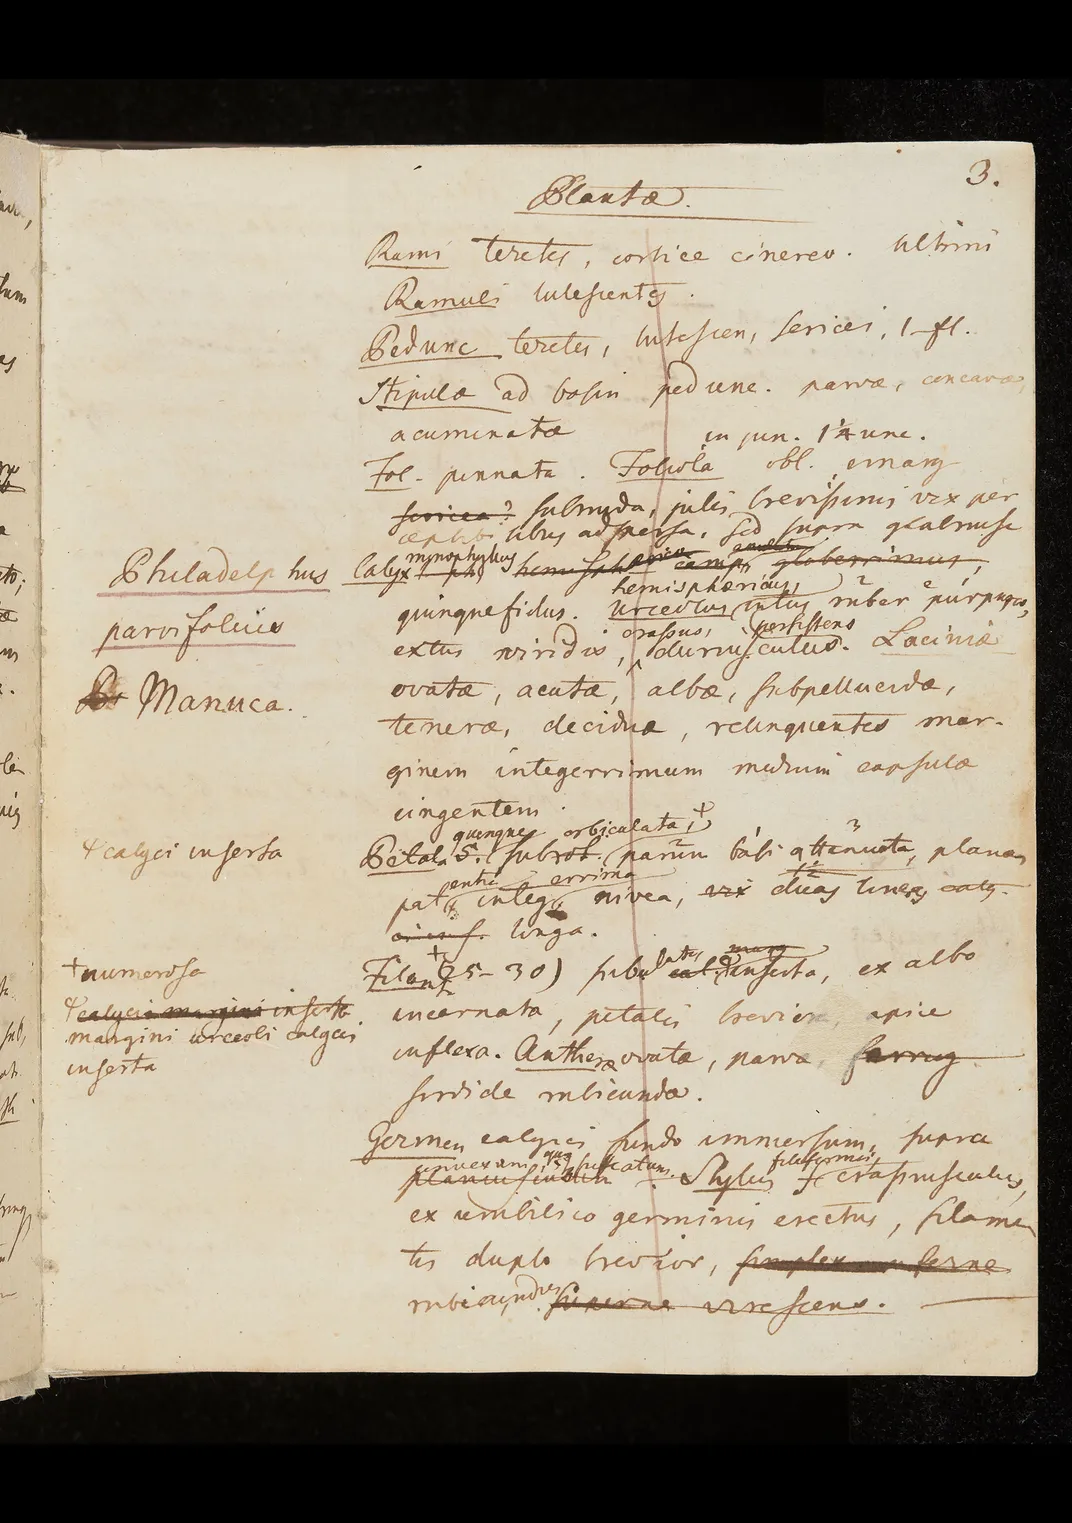 3.
Plantæ.
Rami teretes, cortice cinereo. Ultimi
Ramuli lutescentes.
Pedunc teretes, lutescen, sericei, 1-fl.
Stipulæ ad basin pedunc. parvæ, concavæ,
acuminatæ in jun. 1¼ unc.
Fol. pinnata. Foliola obl. emarg
sericea? subnuda, pilis brevissimis vix per
ibus adspersa. sed supra glabriusc
Philadelphus
parvifolius
Manuca.
Calyx monophyllus glaberrimus,
hemisphæricus,
quinquefidus. Urceolus intus ruber e purpureo,
crassus, persistens
extus viridis, duriusculus. Laciniæ
ovatæ, acutæ, albæ, subpellucidæ,
teneræ, deciduæ, relinquentes mar-
ginem integerrimum medium capsulæ
cingentem.
quinque orbiculata,+
calyci inserta
Petala 5. subrot. parum basi attenuata, plana
pat integ errima nivea, vix duas lineas caly
longa.
+numerosa
calyci margini inserta
margini urceoli calycis
inserta
Filam (25-30) subulata, marg inserta, ex albo
incarnata, petalis breviora apice
inflexa. Antheræ ovatæ, parvæ, ferrug
sordide rubicundæ.
Germen calycis fundo immersum, supra
convexum sulcatum. Stylus filiformis, crassiusculus,
ex umbilico germinis erectus, filamen
tis duplo brevior, simplex superne
rubicundus. superne virescens.